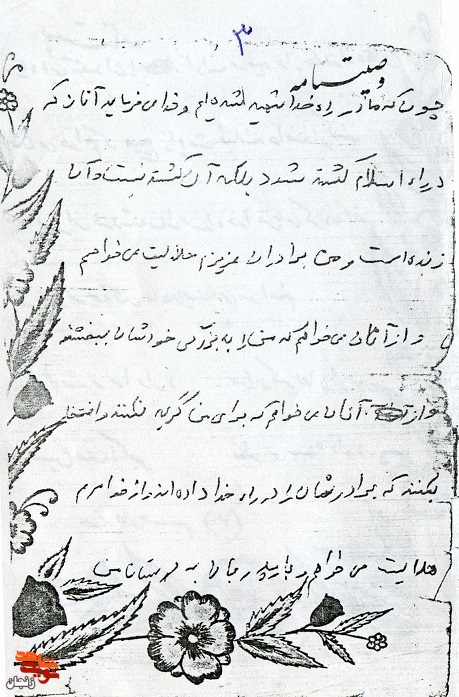 ۳
وصیتنامه
چون که ما در راه خدا شهید شده‌ایم و خدا می فرماید آنان که
در راه اسلام کشته شدند بلکه آن کشته نیست و آنا
زنده است و من برادران عزیزم حلالیت می خواهم
و از آنان می خواهم که من را به بزرگی خودشان ببخشند
و از آنان می خواهم که برای من گریه نکنند و افتخار
بکنند که برادرشان را در راه خدا داده اند و از خواهرم
حلالیت می خواهم و باید به دوستان من
زنجان